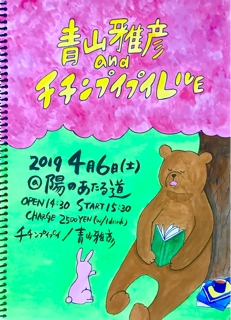 青山雅彦
and
チチンプイプイLIVE
2019 4月6日(土)
@陽のあたる道
OPEN 14:30 START 15:30
CHARGE 2500YEN(w/1drink)
チチンプイプイ/青山雅彦